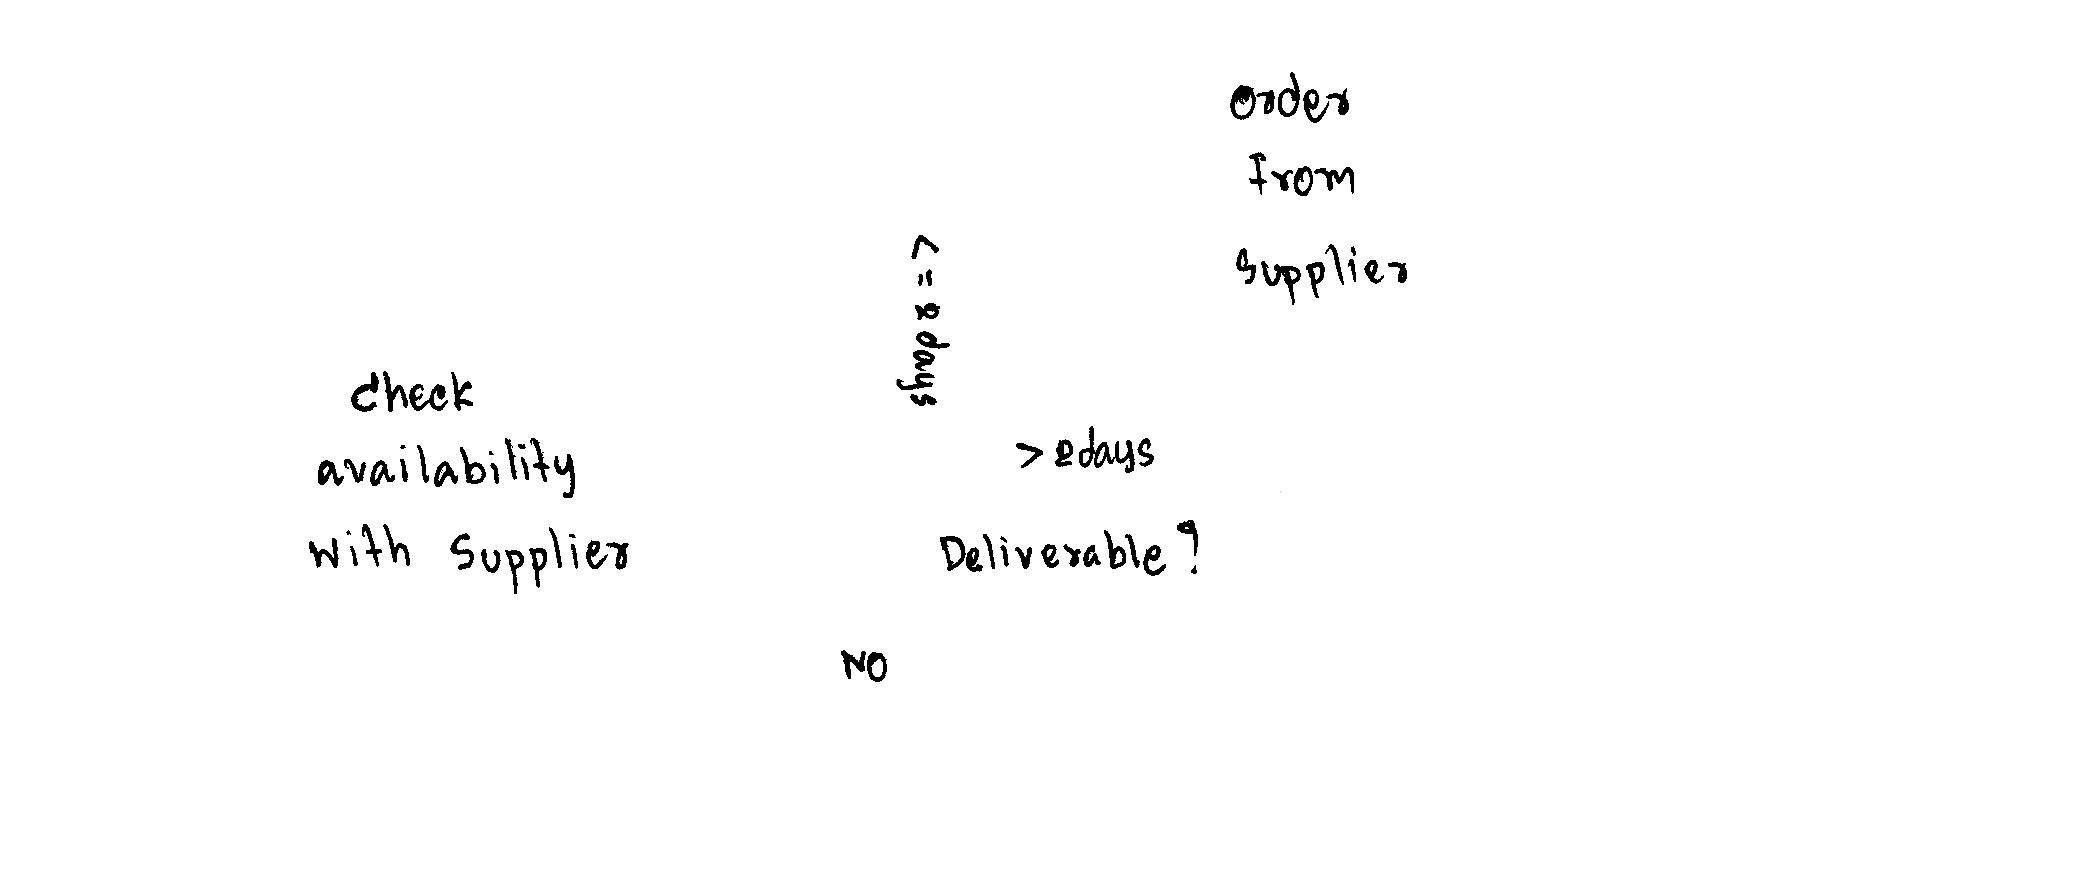 Order
from
Supplier
<= 2 days
check
availability
with Supplier
> 2days
Deliverable?
NO